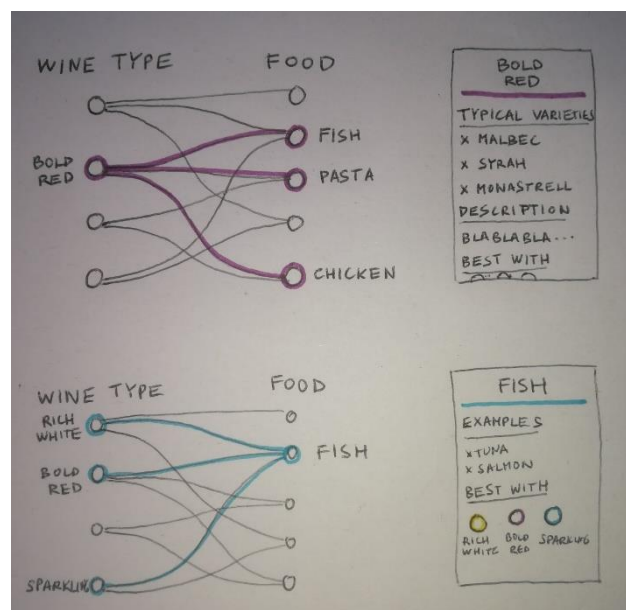 WINE TYPE
FOOD
BOLD
RED
FISH
PASTA
CHICKEN
BOLD
RED
TYPICAL VARIETIES
x MALBEC
x SYRAH
x MONASTRELL
DESCRIPTION
BLABLABLA...
BEST WITH
WINE TYPE
FOOD
RICH
WHITE
BOLD
RED
SPARKLING
FISH
FISH
EXAMPLES
x TUNA
x SALMON
BEST WITH
RICH WHITE
BOLD RED
SPARKLING